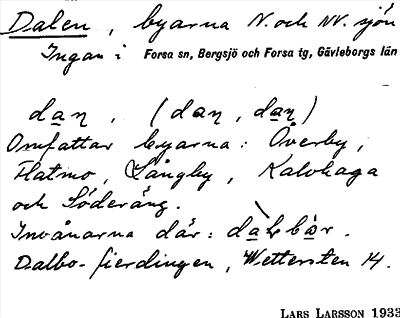 Dalen, byarna N. och NV. sjön
Ingan i Forsa sn, Bergsjö och Forsa tg, Gävleborgs län
dan, (dan, dan)
Omfattar byarna: Överby,
Flatmo, Långby, Kalvhaga
och Söderäng.
Invånarna där: dalbär.
Dalbo-fierdingen, Wettersten 14.
LARS LARSSON 1933